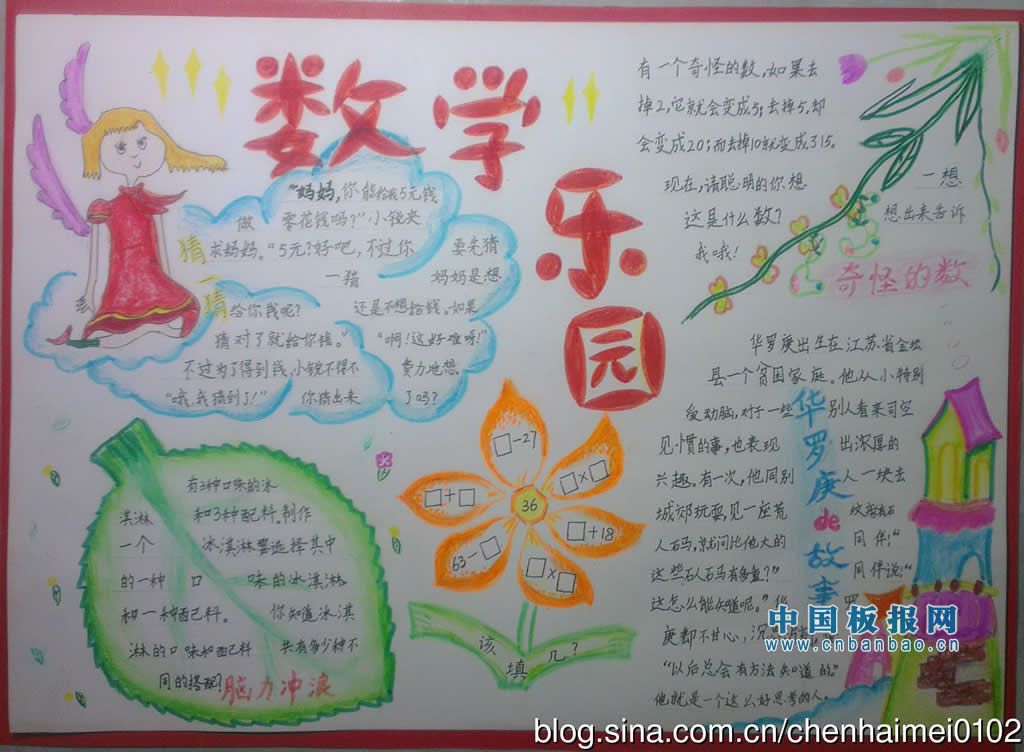 数学
乐
园
"妈妈,你能给我5元钱
做 零花钱吗?"小锐来
求妈妈。"5元?好吧,不过你 要先猜
一猜 妈妈是想
给你钱呢? 还是不想给钱。如果
猜对了就给你钱。" "啊!这好难呀!"
不过为了得到钱,小锐不得不 费力地想。
"哦,我猜到了!" 你猜出来 了吗?
猜
一
猜
有一个奇怪的数,如果去
掉2,它就会变成5;去掉5,却
会变成20;而去掉10就变成了15。
现在,请聪明的你想 一想
这是什么数? 想出来告诉
我哦!
奇怪的数
有3种口味的冰
淇淋 和3种配料。制作
一个 冰淇淋要选择其中
的一种 口 味的冰淇淋
和一种配料。 你知道冰淇
淋的口味和配料 共有多少种不
同的搭配?
脑力冲浪
□-27
□×□
□+18
□×□
63-□
□+□
36
该填几?
华罗庚出生在江苏省金坛
县一个贫困家庭。他从小特别
爱动脑,对于一些 别人看来司空
见惯的事,也表现 出浓厚的
兴趣。有一次,他同别 人一块去
城郊玩耍,见一座荒 坟旁有石
人石马,就问比他大的 同伴:"
这些石人石马有多重?" 同伴说:"
这怎么能知道呢。"华 罗
庚却不甘心,沉
"以后总会有方法知道的。"
他就是一个这么好思考的人。
华罗庚de故事
中国板报网
www.cnbanbao.cn
blog.sina.com.cn/chenhaimei0102